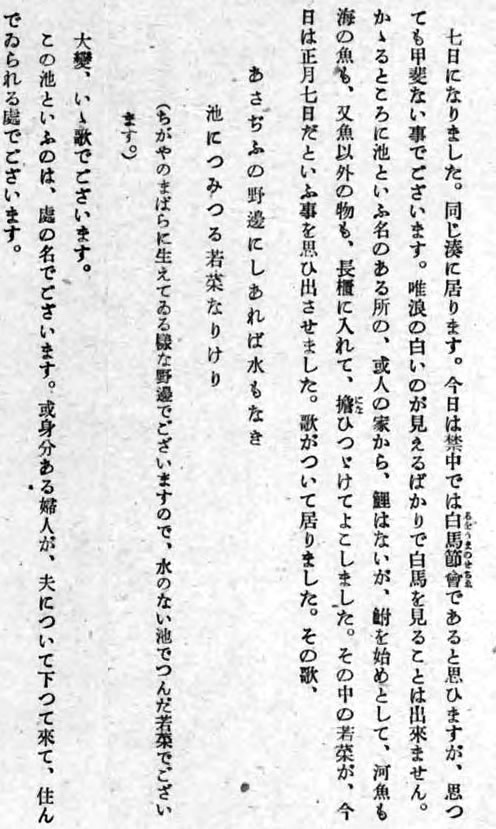 七日になりました。同じ湊に居ります。今日は禁中では白馬節會であると思ひますが、思つ
ても甲斐ない事でございます。唯浪の白いのが見えるばかりで白馬を見ることは出來ません。
かゝるところに池といふ名のある所の、或人の家から、鯉はないが、鮒を始めとして、河魚も
海の魚も、又魚以外の物も、長櫃に入れて、擔ひつゞけてよこしました。その中の若菜が、今
日は正月七日だといふ事を思ひ出させました。歌がついて居りました。その歌、
あさぢふの野邊にしあれば水もなき
池につみつる若菜なりけり
(ちがやのまばらに生えてゐる樣な野邊でございますので、水のない池でつんだ若菜でござい
ます。)
大變、いゝ歌でございます。
この池といふのは、處の名でございます。或身分ある婦人が、夫について下つて來て、住ん
でゐられる處でございます。